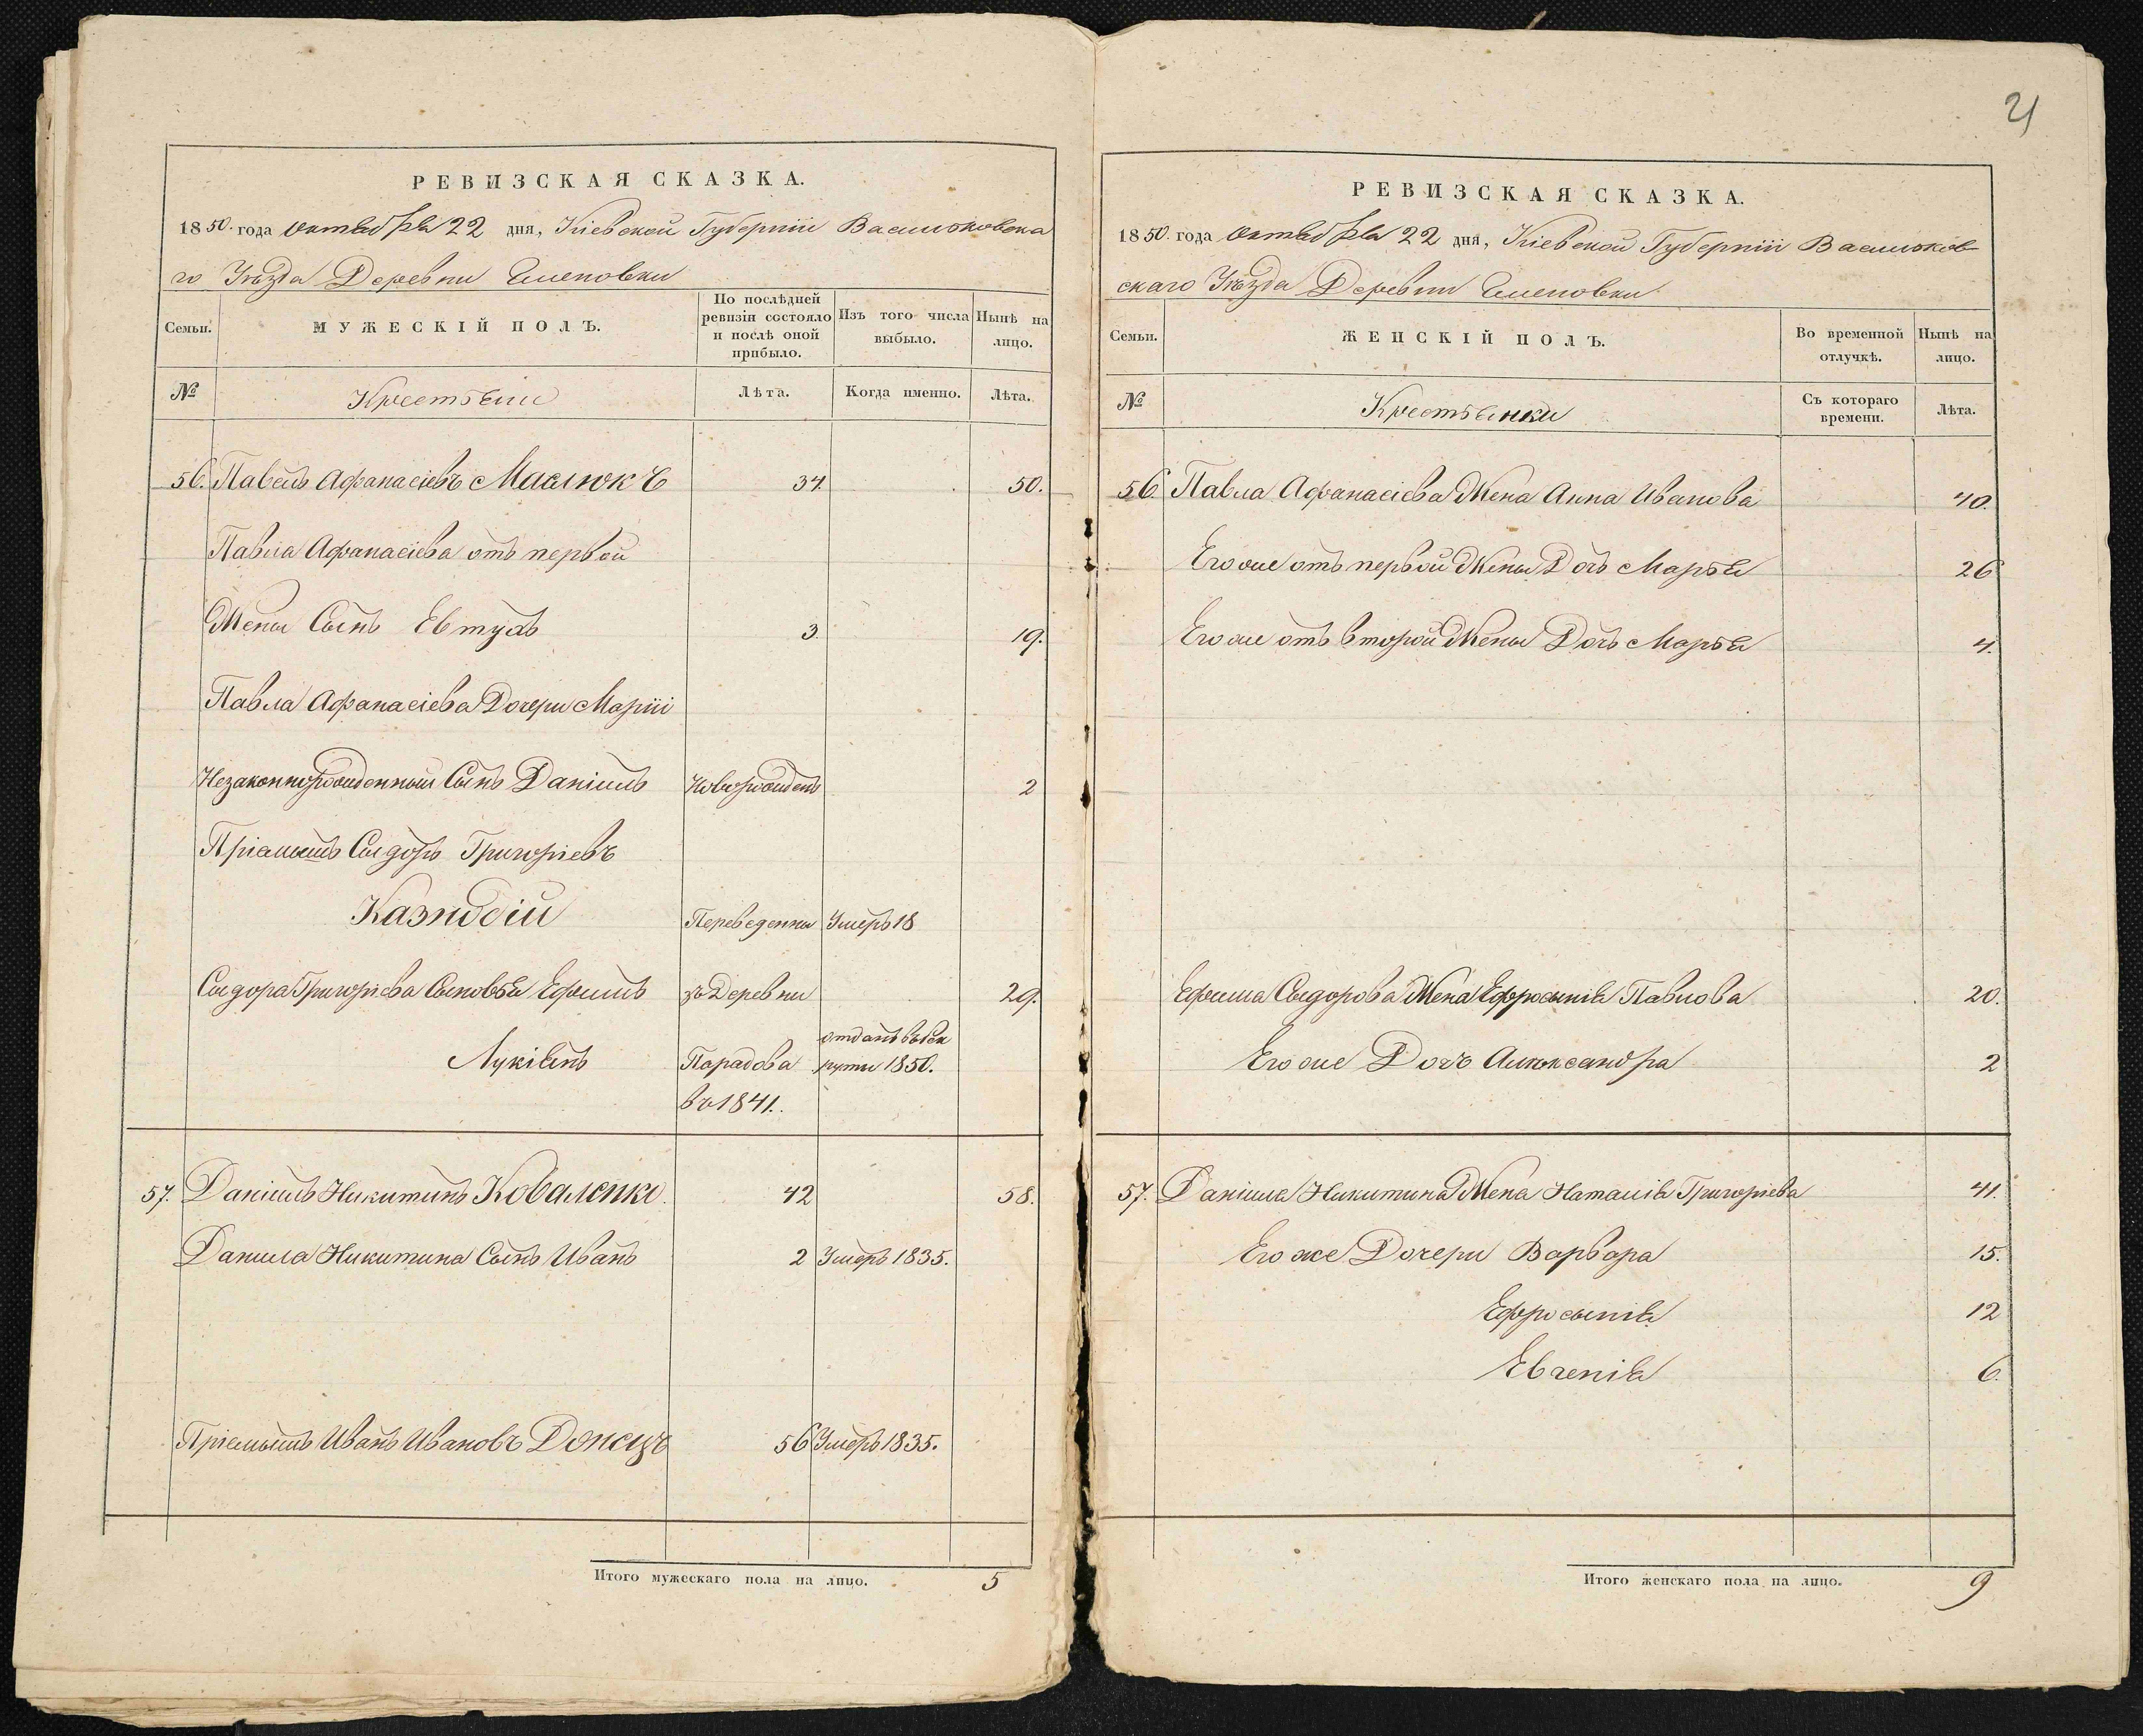 21
РЕВИЗСКАЯ СКАЗКА.
1850. года Октября 22 дня, Кіевской Губерніи Васильковска
го Уѣзда Деревни
Семьи.
МУЖЕСКІЙ ПОЛЪ.
По послѣдней ревизіи состояло и послѣ оной прибыло.
Изъ того числа выбыло.
Нынѣ на лицо.
№
Крестьяни
Лѣта.
Когда именно.
Лѣта.
56. Павелъ Афанасіевъ Маслюкъ 34. 50.
Павла Афанасіева отъ первой
Жены Сынъ Евтухъ 3. 19.
Павла Афанасіева Дочери Маріи
Незаконнорожденный Сынъ Даніилъ Новорожденъ 2
Пріемышъ Сыдоръ Григоріевъ
Переведенны Умеръ 18
Сыдора Григоріева Сыновья Ефимъ зъ Деревни 29.
Лукіянъ Парадова отданъ въ рек
руты 1850.
въ 1841.
57. Даніилъ Никитинъ Коваленко. 42 58.
Данила Никитина Сынъ Иванъ 2 Умеръ 1835.
Пріемышъ Иванъ Ивановъ Донецъ 56 Умеръ 1835.
Итого мужескаго пола на лицо. 5
РЕВИЗСКАЯ СКАЗКА.
1850. года Октября 22 дня, Кіевской Губерніи Васильков
скаго Уѣзда Деревни
Семьи.
ЖЕНСКІЙ ПОЛЪ.
Во временной отлучкѣ.
Нынѣ на лицо.
№
Крестьянки
Съ котораго времени.
Лѣта.
56. Павла Афанасіева Жена Анна Иванова 40.
Его же отъ первой Жены Дочь Марья 26
Его же отъ второй Жены Дочь Марья 4.
Ефима Сыдорова Жена Ефросинія Павлова 20.
Его же Дочь Александра 2
57. Даніила Никитина Жена Наталія Григоріева 41.
Его же Дочери Варвара 15.
Ефросинія 12
Евгенія 6.
Итого женскаго пола на лицо. 9